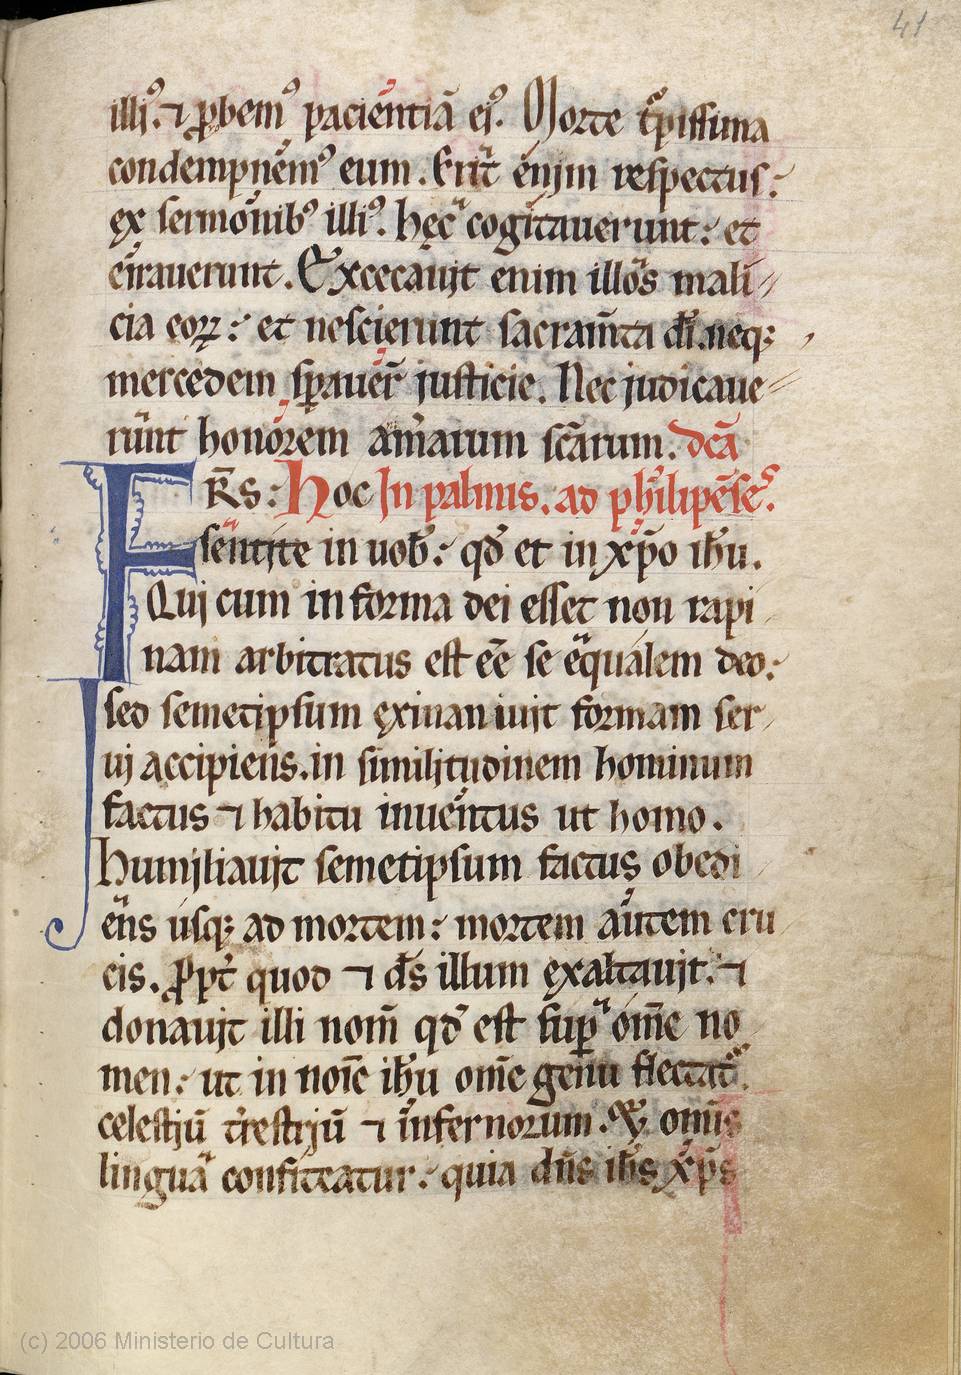 41
illiꝰ. ⁊ ꝓbemꝰ pacientiā eiꝰ. Morte t̾pissima
condempnem̾ꝰ eum. Erit̾ enim respectus:
ex sermonibꝰ illiꝰ. hęc cogitauerunt: et
errauerunt. Excecauit enim illos mali
cia eoꝝ: et nescierunt sacram̄ta dī. neqꝫ
mercedem sꝑauer̄ justicie. Nec judicaue
runt honorem animarum sc̄arum. Dn̄ca
R̄s: Hoc In palmis. ad philipēseꝰ.
Fsentite in uob̄: qd̄ et in xp̄o ih̄u.
Qui cum in forma dei esset non rapi
nam arbitratus est eē se equalem deo:
sed semetipsum exinaniuit formam ser
ui accipiens. in similitudinem hominum
factus ⁊ habitu inuentus ut homo.
Humiliauit semetipsum factus obedi
ens usqꝫ ad mortem: mortem autem cru
cis. Ꝓpt̾ quod ⁊ ds̄ illum exaltauit. ⁊
donauit illi nom̄ qd̄ est suꝑ om̄e no
men: ut in noīe ih̄u om̄e genu flectat̾.
celestiū t̾restriū ⁊ infernorum. Et om̄is
lingua confiteatur: quia dn̄s ih̄s xp̄s
(c) 2006 Ministerio de Cultura